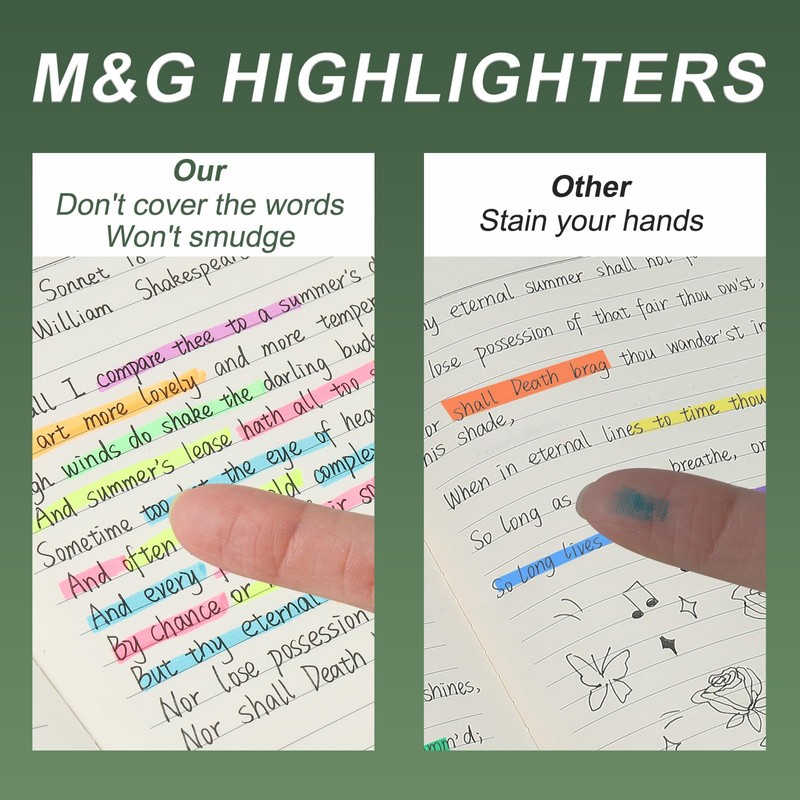 M&G HIGHLIGHTERS
Our
Don't cover the words
Won't smudge
Sonnet 18
William Shakespeare
all I compare thee to a summer's
art more lovely and more temper
gh winds do shake the darling buds
And summer's lease hath all too
Sometime too the eye of hea
And often
And every
By chance or
But thy eternal
Nor lose possession
Nor shall Death
Other
Stain your hands
hy eternal summer shall not
lose possession of that fair thou ow'st;
or shall Death brag thou wander'st in
his shade,
When in eternal lines to time thou
So long as breathe, or
So long lives
shines,
mm'd;